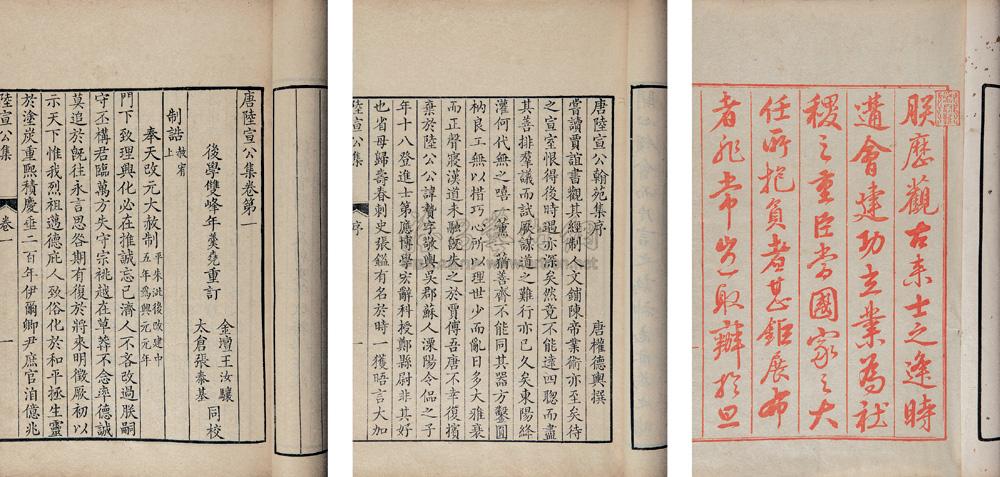 朕歷觀古來士之逢時
遘會建功立業為社
稷之重臣當國家之大
任所抱負者甚鉅展布
者非常豈取辦於旦
唐陸宣公翰苑集序
唐權德輿撰
嘗讀賈誼書觀其經制人文鋪陳帝業術亦至矣待
之宣室恨得後時遇亦深矣然竟不能達四聰而盡
其善排群議而試厥謀道之難行亦已久矣東陽絳
灌何代無之嘻一薰一蕕善齊不能同其器方鑿圓
枘良工無以措巧心所以理世少而亂日多大雅衰
而正聲寢漢道未融既失之於賈傅吾唐不幸復擯
棄於陸公公諱贄字敬輿吳郡蘇人溧陽令侃之子
年十八登進士第應博學宏辭科授鄭縣尉非其好
也省母歸壽春刺史張鎰有名於時一獲晤言大加
陸宣公集 序 一
唐陸宣公集卷第一
後學雙峰年羹堯重訂
金壇王汝驤
太倉張泰基 同校
制誥上 赦宥
奉天改元大赦制 平朱泚後改建中五年為興元元年
門下致理興化必在推誠忘己濟人不吝改過朕嗣
守丕構君臨萬方失守宗祧越在草莽不念率德誠
莫追於既往永言思咎期有復於將來明徵厥初以
示天下惟我烈祖邁德庇人致俗化於和平拯生靈
於塗炭重熙積慶垂二百年伊爾卿尹庶官洎億兆
陸宣公集 卷一 一